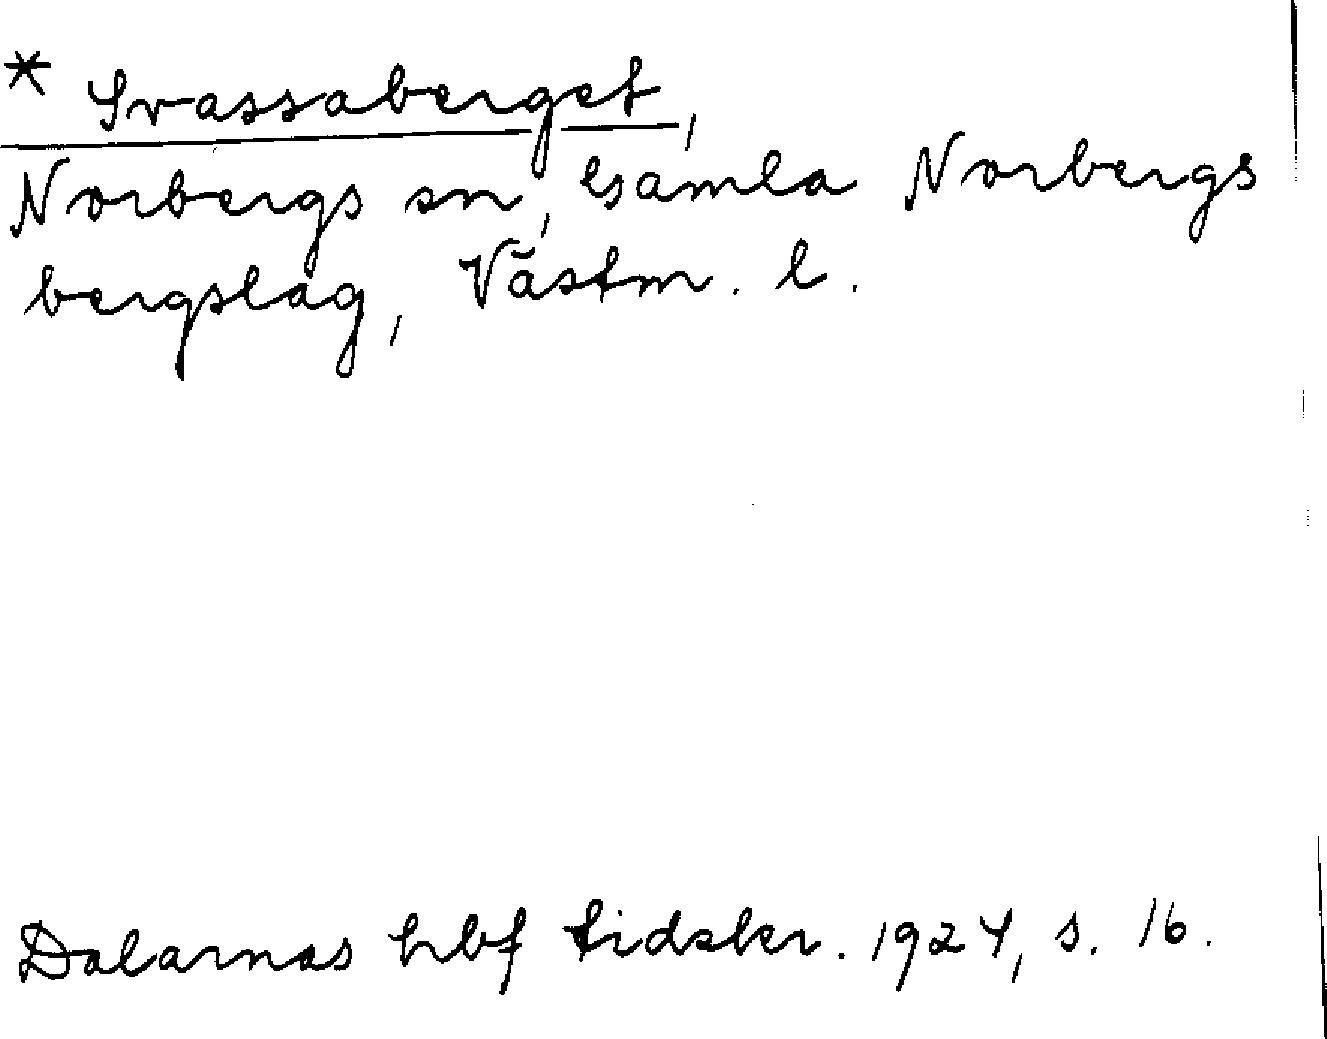 * Svassaberget,
Norbergs sn, Gamla Norbergs
bergslag, Västm. l.
Dalarnas hbf tidskr. 1924, s. 16.